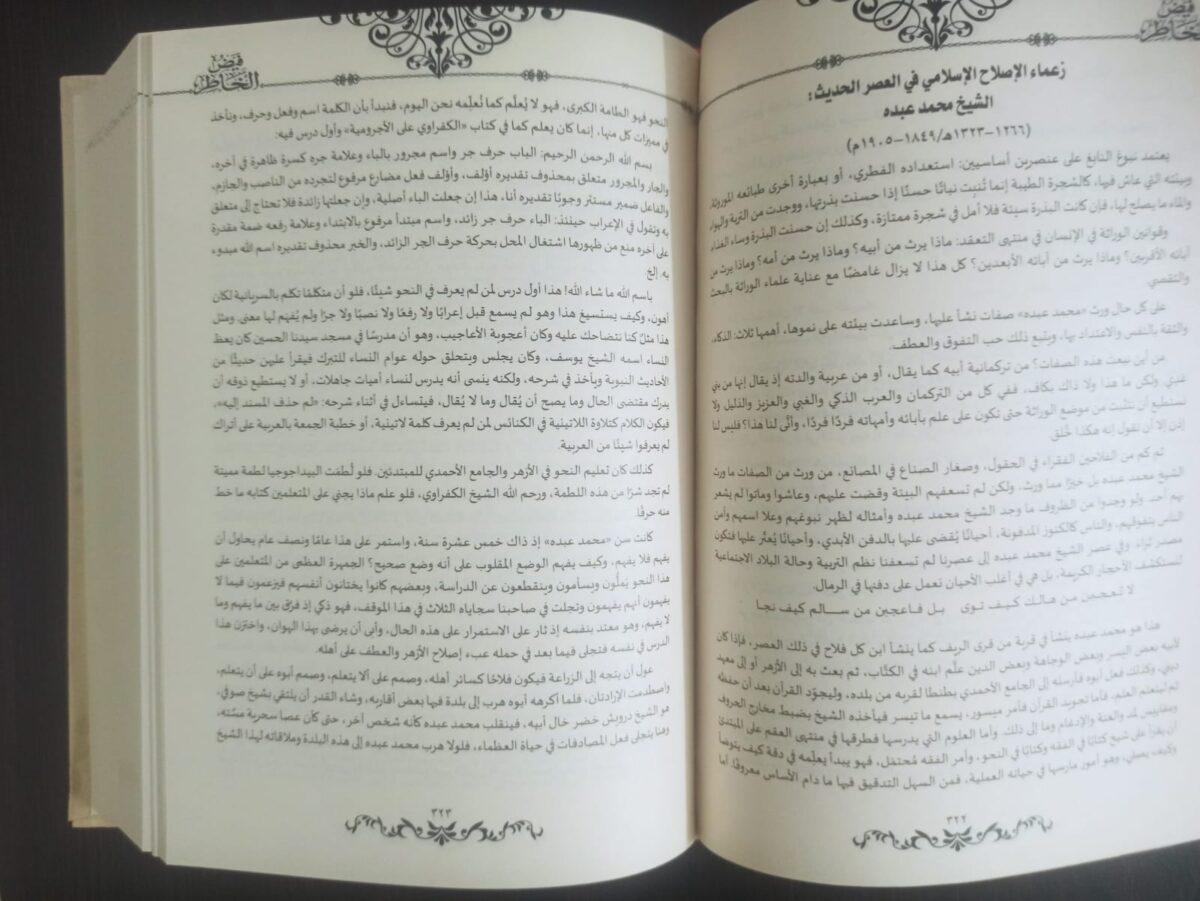 فيض الخاطر
زعماء الإصلاح الإسلامي في العصر الحديث:
الشيخ محمد عبده
(١٢٦٦-١٣٢٣هـ/١٨٤٩-١٩٠٥م)
يعتمد نبوغ النابغ على عنصرين أساسيين: استعداده الفطري، أو بعبارة أخرى طبائعه الموروثة،
وبيئته التي عاش فيها، كالشجرة الطيبة إنما تُنبِت نباتًا حسنًا إذا حسنت بذرتها، ووجدت من التربة والهواء
والماء ما يصلح لها، فإن كانت البذرة سيئة فلا أمل في شجرة ممتازة، وكذلك إن حسنت البذرة وساء الغذاء
وقوانين الوراثة في الإنسان في منتهى التعقد: ماذا يرث من أبيه؟ وماذا يرث من أمه؟ وماذا يرث من
آبائه الأقربين؟ وماذا يرث من آبائه الأبعدين؟ كل هذا لا يزال غامضًا مع عناية علماء الوراثة بالبحث
والتقصي
على كل حال ورث «محمد عبده» صفات نشأ عليها، وساعدت بيئته على نموها، أهمها ثلاث: الذكاء،
والثقة بالنفس والاعتداد بها، ويتبع ذلك حب التفوق والعطف.
من أين نبعت هذه الصفات؟ من تركمانية أبيه كما يقال، أو من عربية والدته إذ يقال إنها من بني
عدي. ولكن ما هذا ولا ذاك بكاف، ففي كل من التركمان والعرب الذكي والغبي والعزيز والذليل ولا
نستطيع أن نتثبت من موضع الوراثة حتى نكون على علم بآبائه وأمهاته فردًا فردًا، وأنَّى لنا هذا؟ فليس لنا
إذن إلا أن نقول إنه هكذا خُلق
ثم كم من الفلاحين الفقراء في الحقول، وصغار الصناع في المصانع، من ورث من الصفات ما ورث
الشيخ محمد عبده بل خيرًا مما ورث، ولكن لم تسعفهم البيئة وقضت عليهم، وعاشوا وماتوا لم يشعر
بهم أحد، ولو وجدوا من الظروف ما وجد الشيخ محمد عبده وأمثاله لظهر نبوغهم وعلا اسمهم وآمن
الناس بتفوقهم، والناس كالكنوز المدفونة، أحيانًا يُقضى عليها بالدفن الأبدي، وأحيانًا يُعثَر عليها فتكون
مصدر ثراء. وفي عصر الشيخ محمد عبده إلى عصرنا لم تسعفنا نظم التربية وحالة البلاد الاجتماعية
لنستكشف الأحجار الكريمة، بل هي في أغلب الأحيان تعمل على دفنها في الرمال.
لا تعجبن من هالك كيف ثوى بل فاعجبن من سالم كيف نجا
هذا هو محمد عبده ينشأ في قرية من قرى الريف كما ينشأ ابن كل فلاح في ذلك العصر، فإذا كان
لأبيه بعض اليسر وبعض الوجاهة وبعض الدين علَّم ابنه في الكتَّاب، ثم بعث به إلى الأزهر أو إلى معهد
ديني، وكذلك فعل أبوه فأرسله إلى الجامع الأحمدي بطنطا لقربه من بلده، وليجوِّد القرآن بعد أن حفظه
ثم ليتعلم العلم. فأما تجويد القرآن فأمر ميسور، يسمع ما تيسر فيأخذه الشيخ بضبط مخارج الحروف
ومقاييس المد والغنة والإدغام وما إلى ذلك. وأما العلوم التي يدرسها فطرقها في منتهى العقم على المبتدئ
أن يقرأ على شيخ كتابًا في الفقه وكتابًا في النحو، وأمر الفقه مُحتمَل، فهو يبدأ يعلِّمه في دقة كيف يتوضأ
وكيف يصلي، وهو أمور مارسها في حياته العملية، فمن السهل التدقيق فيها ما دام الأساس معروفًا. أما
٣٢٢
فيض الخاطر
النحو فهو الطامة الكبرى، فهو لا يُعلَّم كما نُعلِّمه نحن اليوم، فنبدأ بأن الكلمة اسم وفعل وحرف، ونأخذ
في مميزات كل منها، إنما كان يعلم كما في كتاب «الكفراوي على الأجرومية» وأول درس فيه:
بسم الله الرحمن الرحيم: الباب حرف جر واسم مجرور بالباء وعلامة جره كسرة ظاهرة في آخره،
والجار والمجرور متعلق بمحذوف تقديره أؤلف، وأؤلف فعل مضارع مرفوع لتجرده من الناصب والجازم،
والفاعل ضمير مستتر وجوبًا تقديره أنا، هذا إن جعلت الباء أصلية، وإن جعلتها زائدة فلا تحتاج إلى متعلق
به وتقول في الإعراب حينئذ: الباء حرف جر زائد، واسم مبتدأ مرفوع بالابتداء وعلامة رفعه ضمة مقدرة
على آخره منع من ظهورها اشتغال المحل بحركة حرف الجر الزائد، والخبر محذوف تقديره اسم الله مبدوء
به. إلخ
باسم الله ما شاء الله! هذا أول درس لمن لم يعرف في النحو شيئًا، فلو أن متكلمًا تكلم بالسريانية لكان
أهون، وكيف يستسيغ هذا وهو لم يسمع قبل إعرابًا ولا رفعًا ولا نصبًا ولا جزًا ولم يُفهم لها معنى. ومثل
هذا مثلٌ كنا نتضاحك عليه وكان أعجوبة الأعاجيب، وهو أن مدرسًا في مسجد سيدنا الحسين كان يعظ
النساء اسمه الشيخ يوسف، وكان يجلس ويتحلق حوله عوام النساء للتبرك فيقرأ عليهن حديثًا من
الأحاديث النبوية ويأخذ في شرحه، ولكنه ينسى أنه يدرس لنساء أميات جاهلات، أو لا يستطيع ذوقه أن
يدرك مقتضى الحال وما يصح أن يُقال وما لا يُقال، فيتساءل في أثناء شرحه: «لم حذف المسند إليه»،
فيكون الكلام كتلاوة اللاتينية في الكنائس لمن لم يعرف كلمة لاتينية، أو خطبة الجمعة بالعربية على أتراك
لم يعرفوا شيئًا من العربية.
كذلك كان تعليم النحو في الأزهر والجامع الأحمدي للمبتدئين. فلو لُطمَت البيداجوجيا لطمة مميتة
لم تجد شرًا من هذه اللطمة، ورحم الله الشيخ الكفراوي، فلو علم ماذا يجني على المتعلمين كتابه ما خط
منه حرفًا.
كانت سن «محمد عبده» إذ ذاك خمس عشرة سنة، واستمر على هذا عامًا ونصف عام يحاول أن
يفهم فلا يفهم، وكيف يفهم الوضع المقلوب على أنه وضع صحيح؟ الجمهرة العظمى من المتعلمين على
هذا النحو يَملُّون ويسأمون وينقطعون عن الدراسة، وبعضهم كانوا يختانون أنفسهم فيزعمون فيما لا
يفهمون أنهم يفهمون وتجلت في صاحبنا سجاياه الثلاث في هذا الموقف، فهو ذكي إذ فرَّق بين ما يفهم وما
لا يفهم، وهو معتد بنفسه إذ ثار على الاستمرار على هذه الحال، وأبى أن يرضى بهذا الهوان، واختزن هذا
الدرس في نفسه فتجلى فيما بعد في حمله عبء إصلاح الأزهر والعطف على أهله.
عول أن يتجه إلى الزراعة فيكون فلاحًا كسائر أهله، وصمم على ألا يتعلم، وصمم أبوه على أن يتعلم،
واصطدمت الإرادتان، فلما أكرهه أبوه هرب إلى بلدة فيها بعض أقاربه، وشاء القدر أن يلتقي بشيخ صوفي،
هو الشيخ درويش خضر خال أبيه، فينقلب محمد عبده كأنه شخص آخر، حتى كأن عصا سحرية مسَّته،
وهنا يتجلى فعل المصادفات في حياة العظماء، فلولا هرب محمد عبده إلى هذه البلدة وملاقاته لهذا الشيخ
٣٢٣